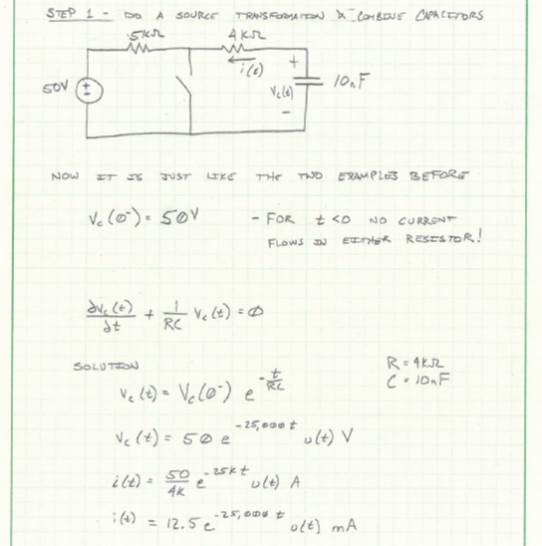 STEP 1 - DO A SOURCE TRANSFORMATION & COMBINE CAPACITORS
5KΩ 4KΩ
i(t)
+
50V
Vc(t)
10nF
-
NOW IT IS JUST LIKE THE TWO EXAMPLES BEFORE
Vc(0⁻) = 50V - FOR t<0 NO CURRENT
FLOWS IN EITHER RESISTOR!
∂vc(t)/∂t + 1/RC Vc(t) = 0
SOLUTION
R = 4KΩ
C = 10nF
Vc(t) = Vc(0⁻) e^-t/RC
Vc(t) = 50 e^-25,000t u(t) V
i(t) = 50/4K e^-25Kt u(t) A
i(t) = 12.5 e^-25,000t u(t) mA